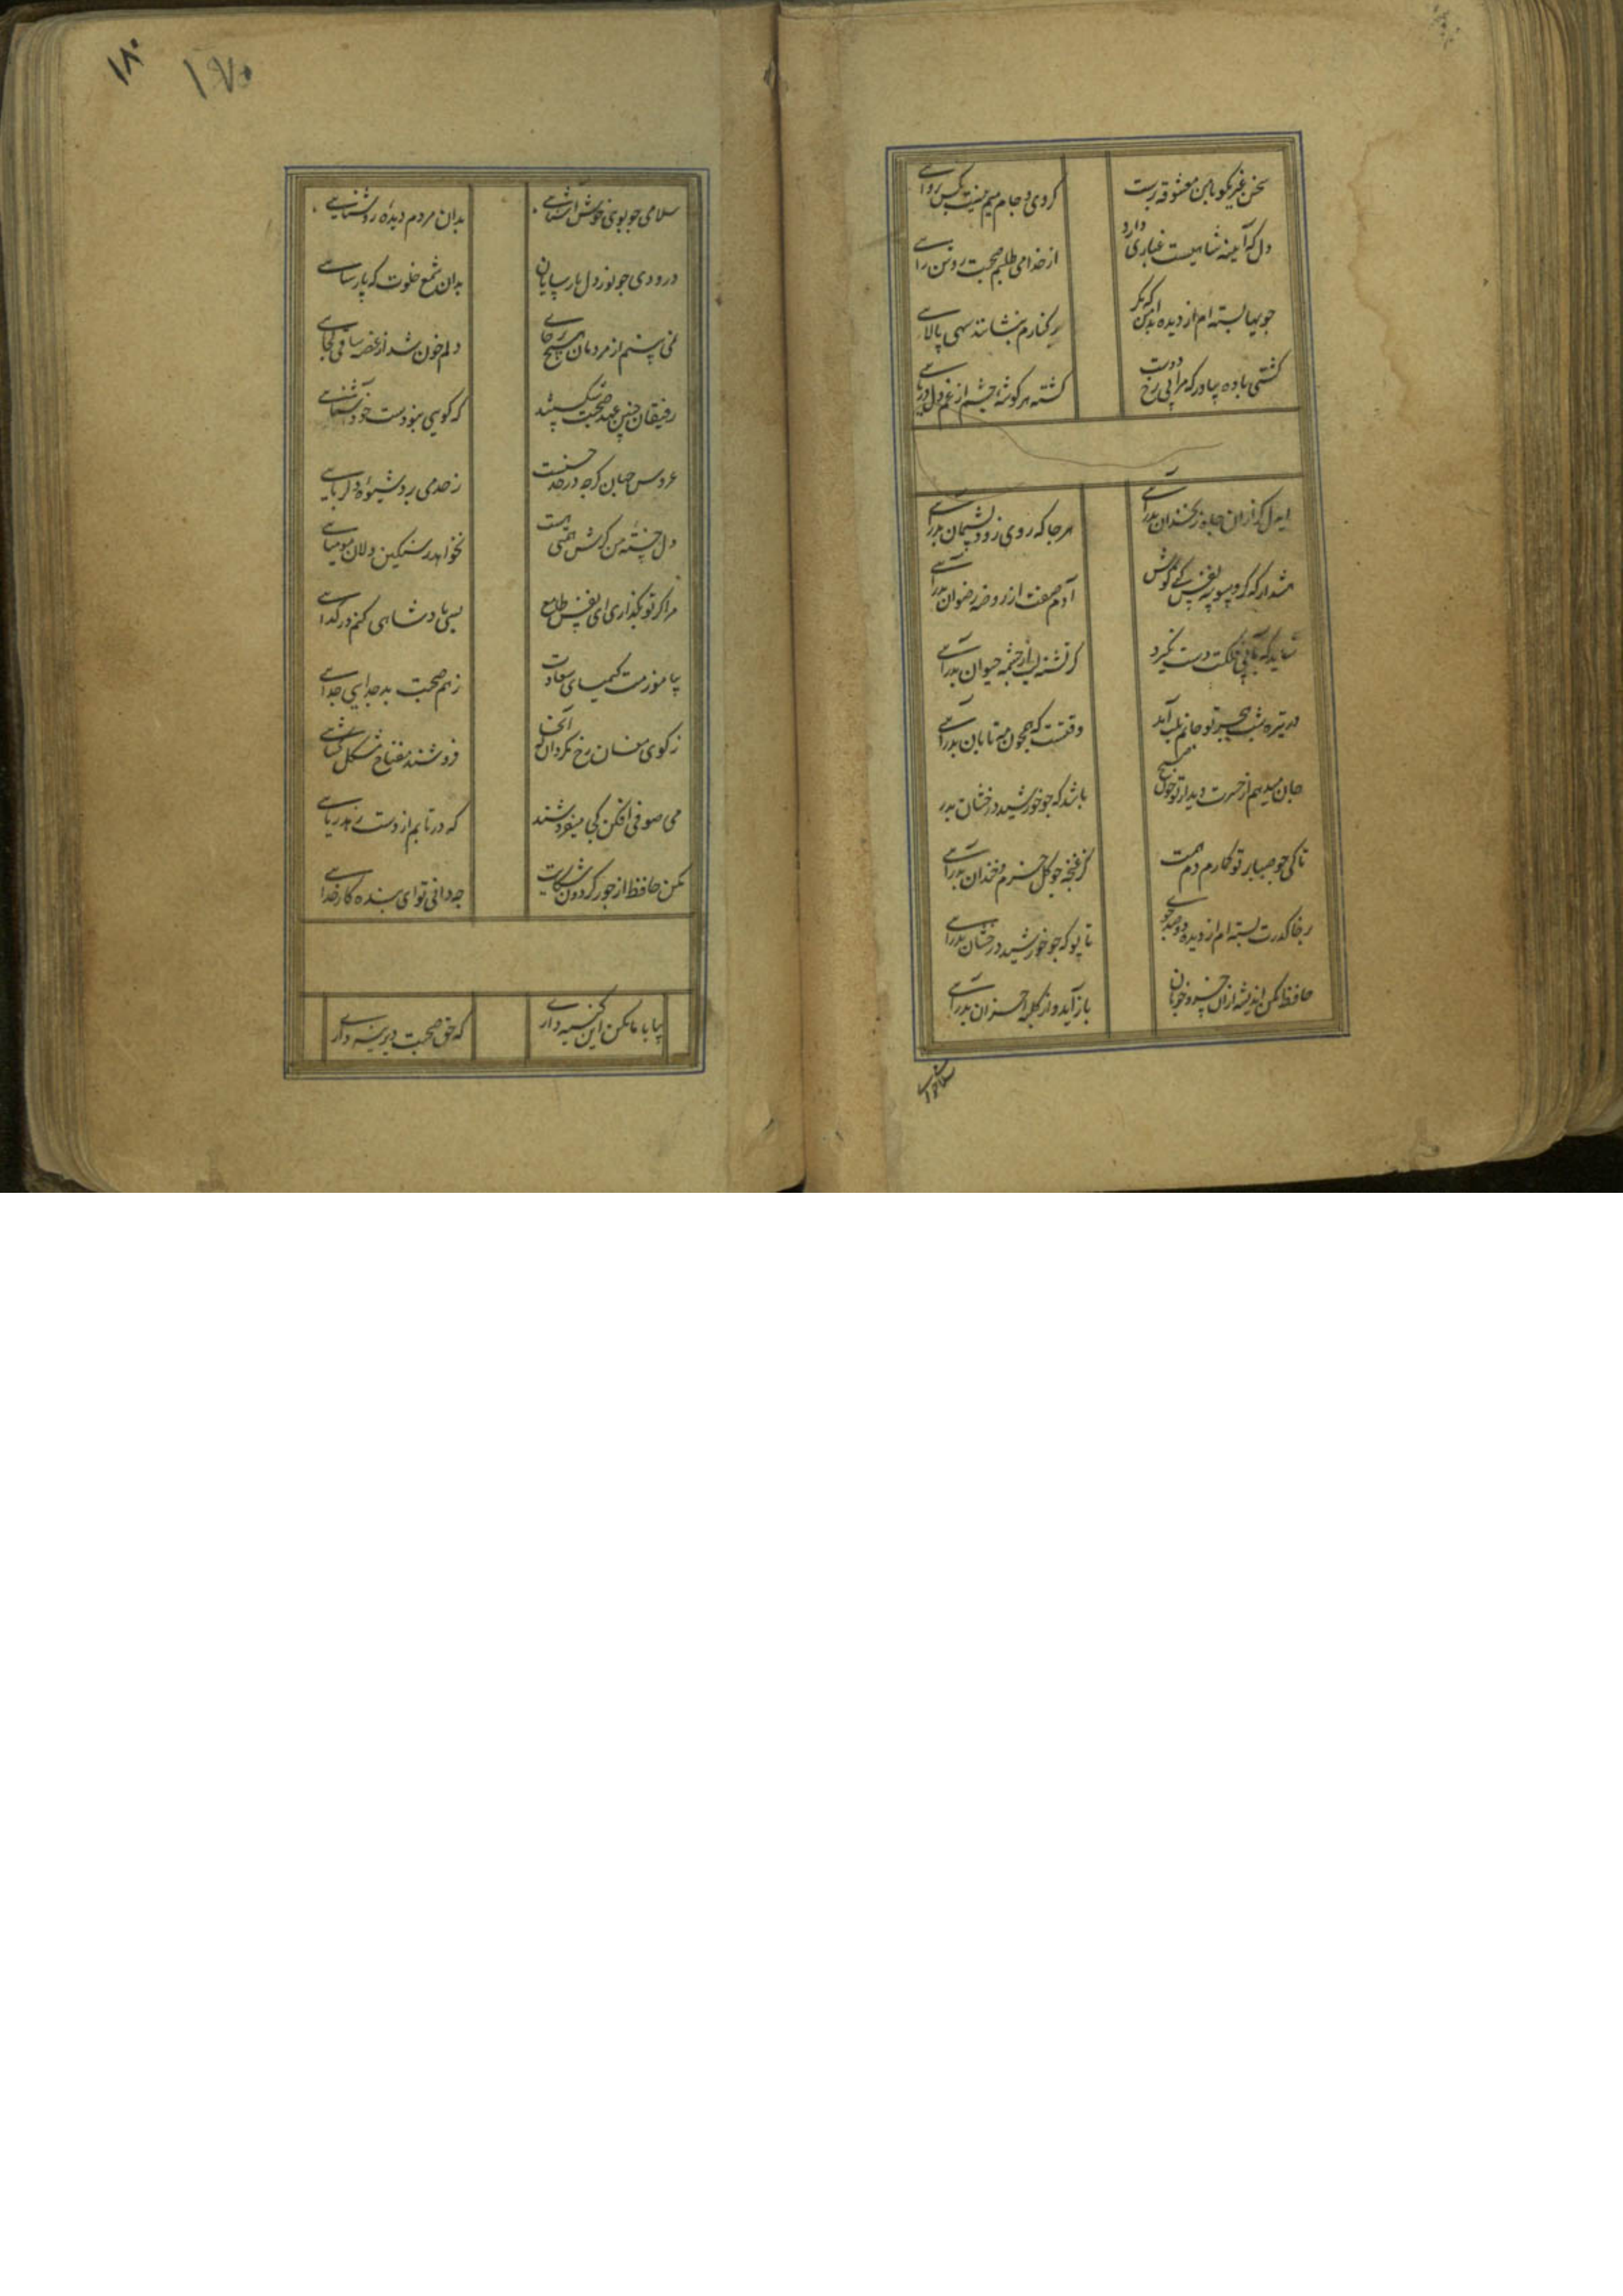 سخن غیر مگو با من معشوقه پرست کز وی و جام میم نیست بکس پروای
دل که آیینه شاهیست غباری دارد از خدا می طلبم صحبت روشن رای
جویها بسته ام از دیده بدامن که مگر در کنارم بنشانند سهی بالای
کشتی باده بیاور که مرا بی رخ دوست کشته هر گوشه چشم از غم دل دریای
ایدل گر از آن چاه زنخدان بدرآی هر جا که روی زود پشیمان بدرآی
هشدار که گر وسوسه نفس کنی گوش آدم صفت از روضه رضوان بدرآی
شاید که بآبی فلکت دست نگیرد گر تشنه لب از چشمه حیوان بدرآی
در تیره شب هجر تو جانم بلب آمد وقتست که همچون مه تابان بدرآی
جان میدهم از حسرت دیدار تو چون صبح باشد که چو خورشید درخشان بدر
تا کی چو صبا بر تو گمارم دم همت کز غنچه چو گل خرم و خندان بدرآی
بر خاک درت بسته ام از دیده دو صد جوی تا بو که چو خورشید درخشان بدرآی
حافظ مکن اندیشه از آن خسرو خوبان باز آید و از کلبه احزان بدرآی
سلامی
۱۸۰
۱۷۰
سلامی چو بوی خوش آشنایی بدان مردم دیده روشنایی
درودی چو نور دل پارسایان بدان شمع خلوت که پارسایی
نمی بینم از مردمان هیچ جای دلم خون شد از غصه ساقی کجایی
رفیقان چنین عهد صحبت شکستند که گویی نبودست خود آشنایی
عروس جهان گرچه در حد حسنست ز حد می برد شیوه دلربایی
دل خسته من گرش همتی هست نخواهد ز سنگین دلان مومیایی
مرا گر تو بگذاری ای نفس طامع بسی پادشاهی کنم در گدایی
بیاموزمت کیمیای سعادت ز هم صحبت بد جدایی جدایی
ز کوی مغان رخ مگردان که آنجا فروشند مفتاح مشکل گشایی
می صوفی افکن کجا میفروشند که در تابم از دست زهد ریایی
مکن حافظ از جور گردون شکایت چه دانی تو ای بنده کار خدایی
بیا با ما مکن این کینه داری که حق صحبت دیرینه داری